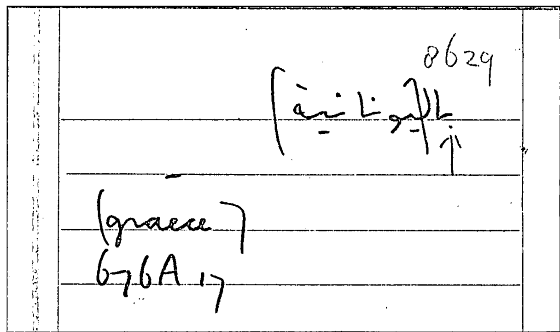 8629
بال[يونانية]
[graece]
676A 17